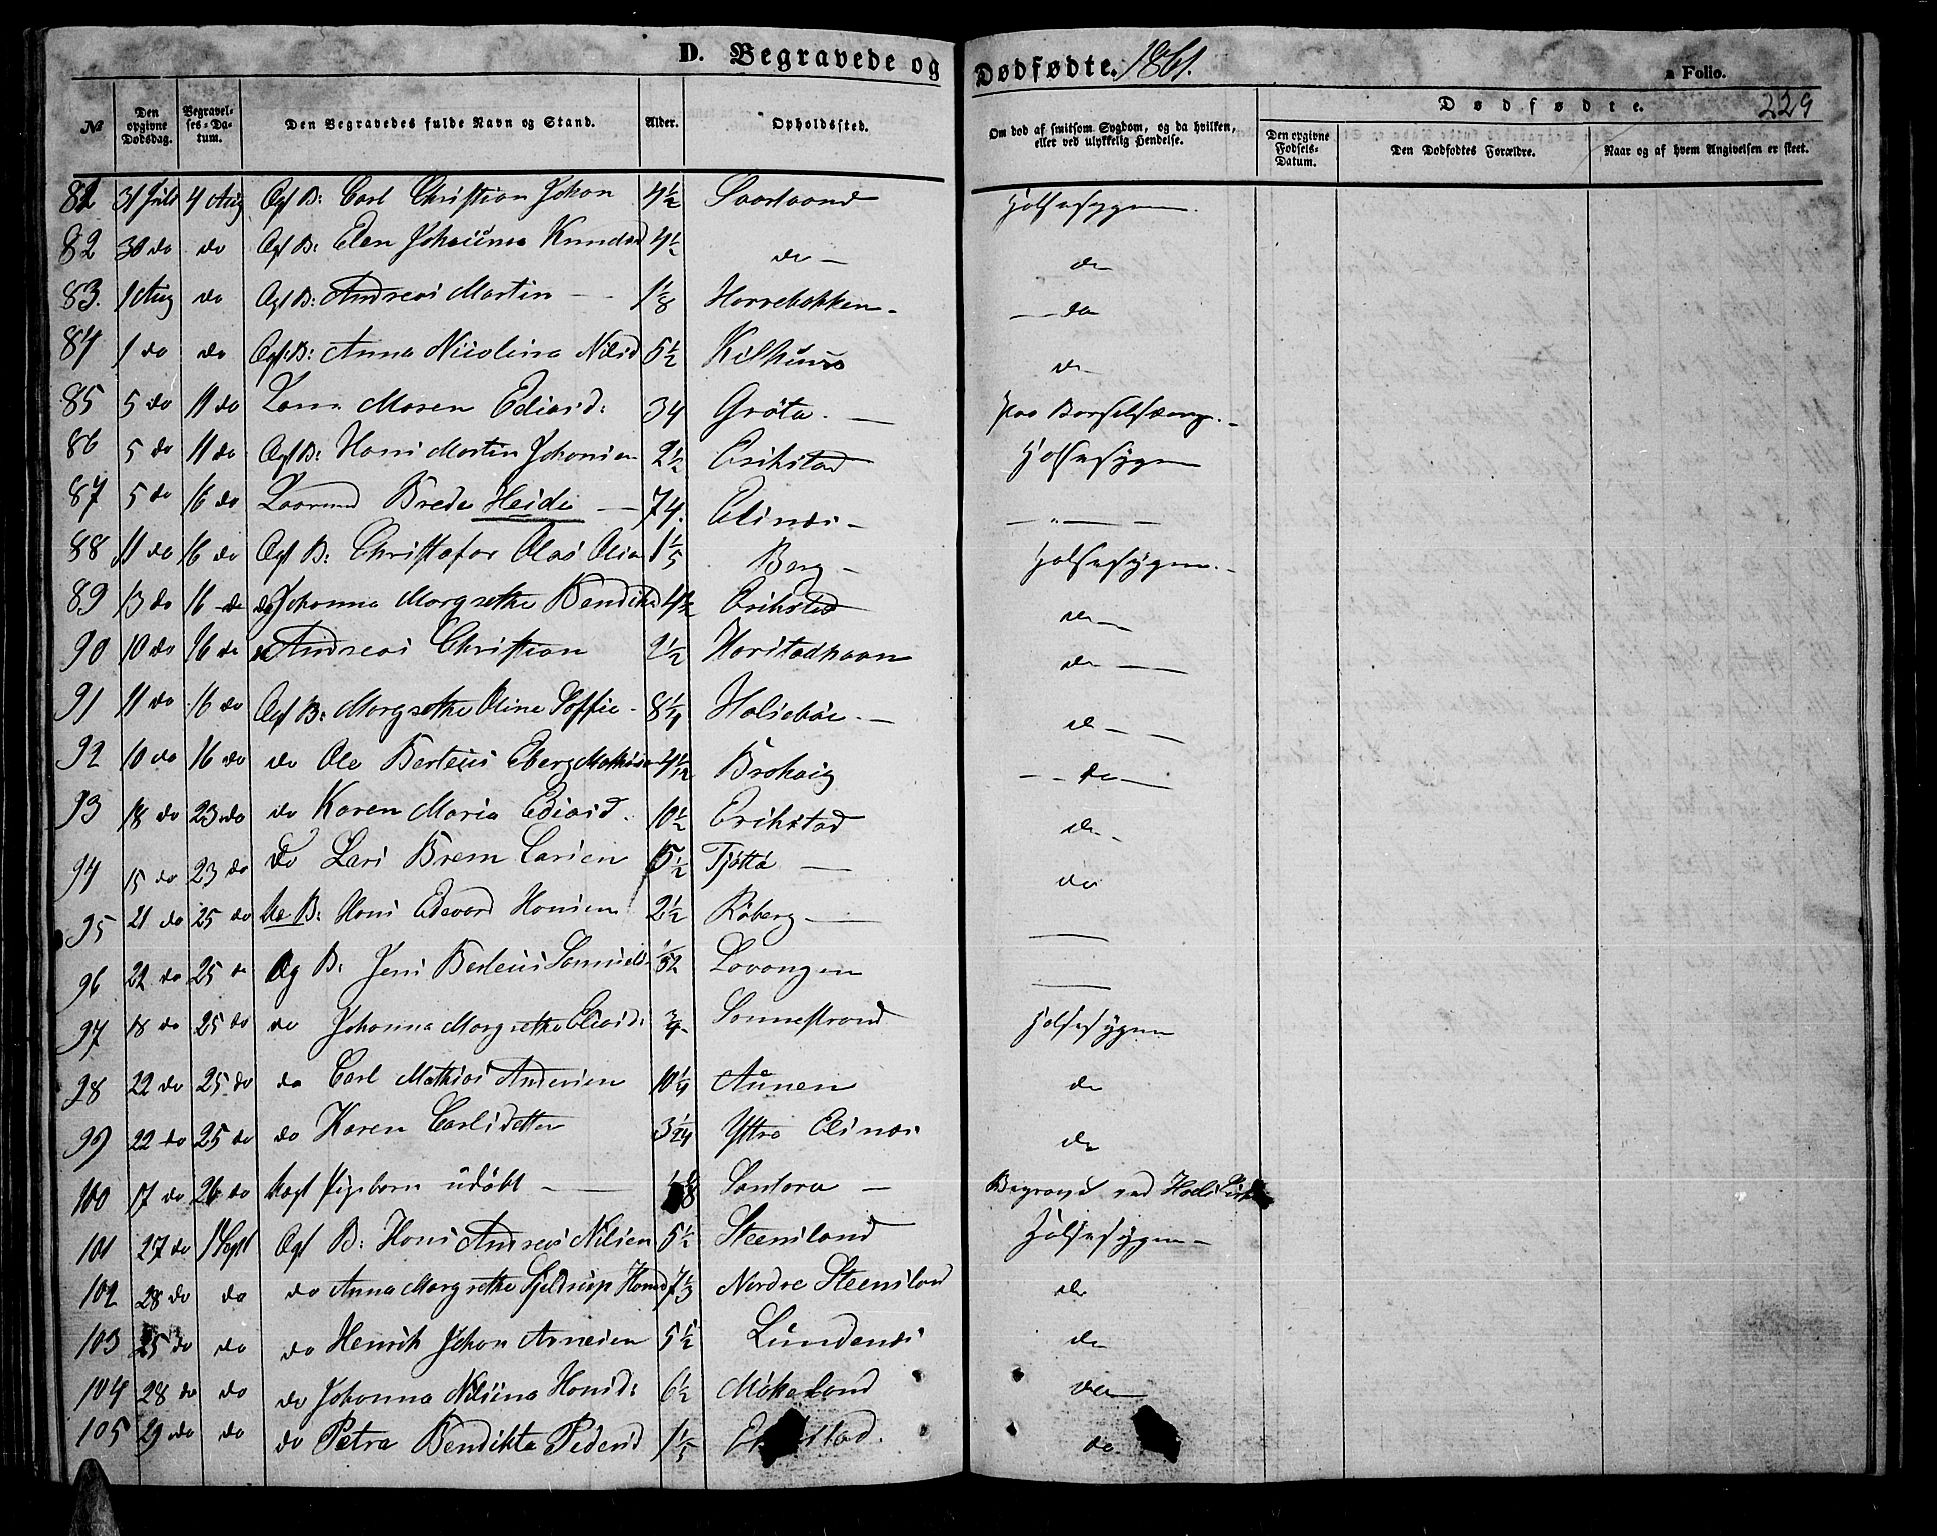 D. Begravede og Dødfødte. 1861.
a Folio.
229
№
Den opgivne Dødsdag.
Begravelses-Datum.
Den Begravedes fulde Navn og Stand.
Alder.
Opholdssted.
Om død af smitsom Sygdom, og da hvilken, eller ved ulykkelig Hendelse.
Dødfødte.
Den opgivne Fødsels-Datum.
Den Dødfødtes Forældre.
Naar og af hvem Angivelsen er skeet.
82 31 Juli 4 Aug Ægt B: Carl Christian Johan 4 1/2 Halsesygen.
82 30 do do Ægt B: Elen Johanna Knudsd 4 1/2 do do
83. 1 Aug do Ægt B: Andreas Martin 1 1/8 Horrebakken do
84 1 do do Ægt B: Anna Nicolina Nilsd 5 1/2 Kilhuus do
85 5 do 11 do Maren Ediasd: 34 Grøta. Paa Barselseng.
86 5 do 11 do Ægt B: Hans Martin Johansen 2 1/2 Erikstad Halsesygen
87 5 do 16 do Brede Heide 74. Elinæs
88 11 do 16 do Ægt B: Christofer Olai Olsen 1 1/5 Berg Halsesygen.
89 13 do 16 do do Johanna Margrethe Bendiks 4 1/2 Erikstad do
90 10 do 16 do do Andreas Christian 2 1/2 Haristadhaan do
91 11 do 16 do Ægt B: Margrethe Oline Soffie 8 1/4 Halsebøe do
92 10 do 16 do do Ole Berteus Eberg Mathisen 4 1/12 Brokvig do
93 18 do 23 do do Karen Maria Ediasd. 10 1/2 Erikstad do
94 15 do 23 do do Lars Brem Larsen 5 1/2 Tjøtta do
95 21 do 25 do Ue B: Hans Edevard Hansen 2 1/2 Røberg
96 22 do 25 do Æg B: Jens Berteus Samuels 1/52 Lovangen
97 18 do 25 do do Johanna Margrethe Eliasd: 3/4 Sannestrand Halsesygen
98 22 do 25 do do Carl Mathias Andersen 10 1/4 Aunen do
99 22 do 25 do do Karen Carlsdatter 3 1/24 Yttre Elinæs do
100 17 do 26 do Uægt Pigebarn udøbt Santora Begravet ved Hols Kirke
101 27 do 1 Sept Ægt B: Hans Andreas Nilsen 5 1/2 Steensland Halsesygen
102 28 do do do Anna Margrethe Tjeldrup Hansd 7 1/3 Nordre Steensland do
103 25 do do do Henrik Johan Arnesen 5 1/2 Lundenæs do
104 28 do do do Johanna Nilsina Hansd: 6 1/2 Møkeland do
105 29 do do do Petra Bendikta Pedersd 1 1/5 do